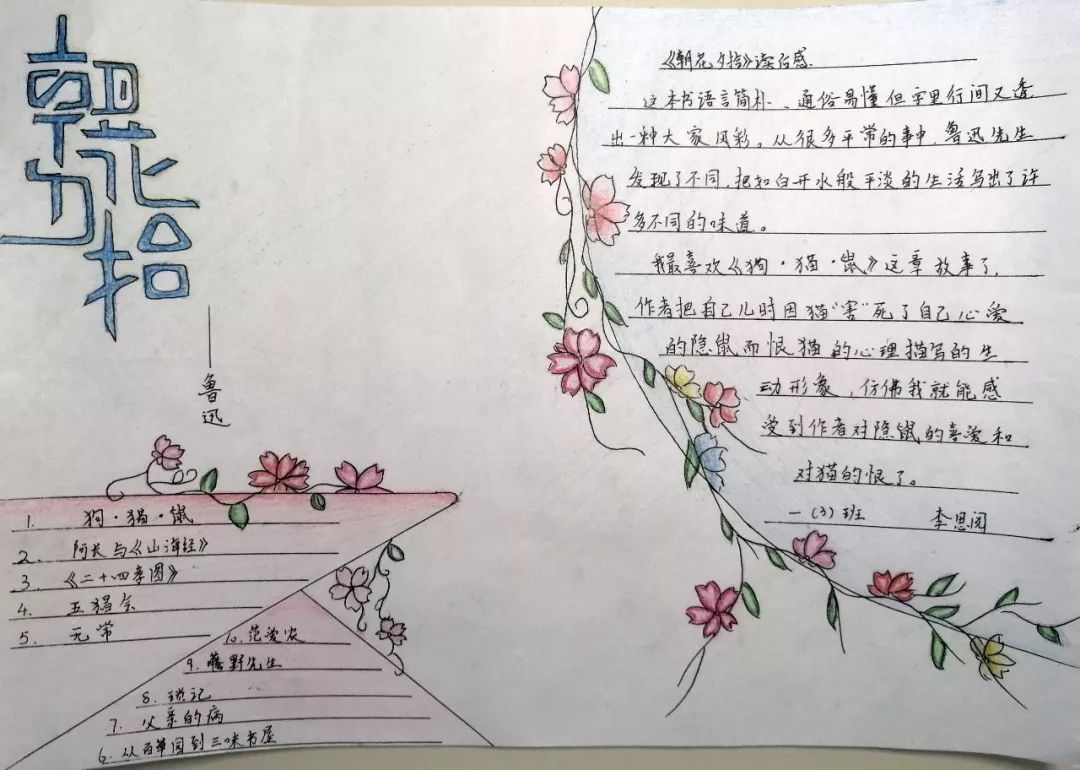 朝花夕拾
——鲁迅
《朝花夕拾》读后感
这本书语言简朴、通俗易懂但字里行间又透
出一种大家风彩。从很多平常的事中,鲁迅先生
发现了不同,把如白开水般平淡的生活写出了许
多不同的味道。
我最喜欢《狗·猫·鼠》这章故事了,
作者把自己儿时因猫"害"死了自己心爱
的隐鼠而恨猫的心理描写的生
动形象,仿佛我就能感
受到作者对隐鼠的喜爱和
对猫的恨了。
一(3)班 李思阅
1. 狗·猫·鼠
2. 阿长与《山海经》
3. 《二十四孝图》
4. 五猖会
5. 无常
10. 范爱农
9. 藤野先生
8. 琐记
7. 父亲的病
6. 从百草园到三味书屋